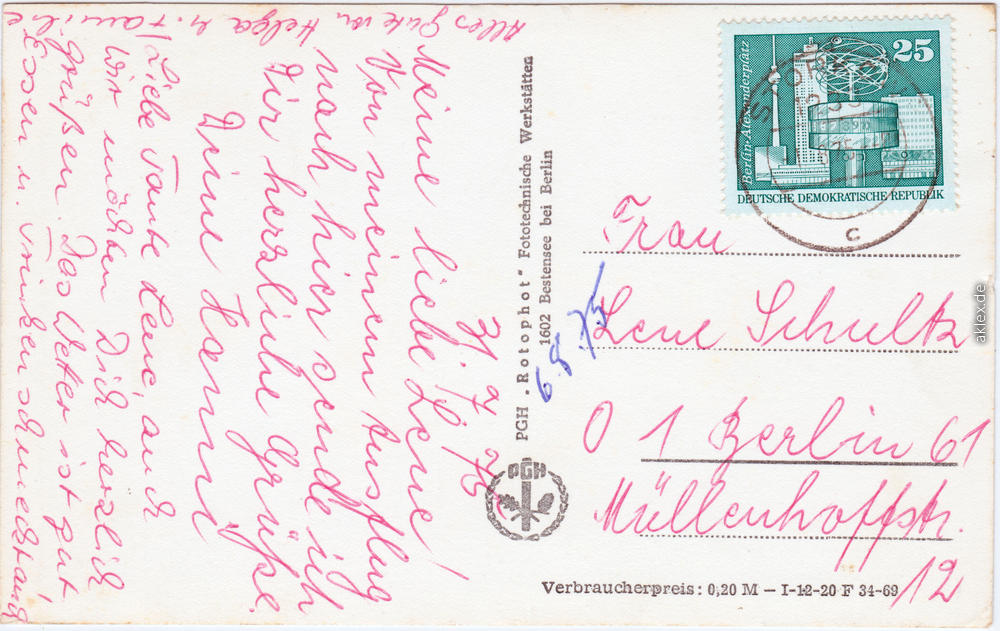 31. 7. 75
Meine liebe Lene!
Von meinem Ausflug
nach hier sende ich
Dir herzliche Grüße.
Deine Hanni
Liebe Tante Lene, auch
wir möchten Dich herzlich
grüßen. Das Wetter ist gut
Essen u. Trinken schmeckt
Alles Gute von Helga u. Familie
PGH „Rotophot“ Fototechnische Werkstätten
1602 Bestensee bei Berlin
PGH
6.8.75
25
Berlin-Alexanderplatz
DEUTSCHE DEMOKRATISCHE REPUBLIK
c
Frau
Lene Schultz
1 Berlin 61
Müllenhoffstr.
12
Verbraucherpreis: 0,20 M — I-12-20 F 34-69
aklex.de